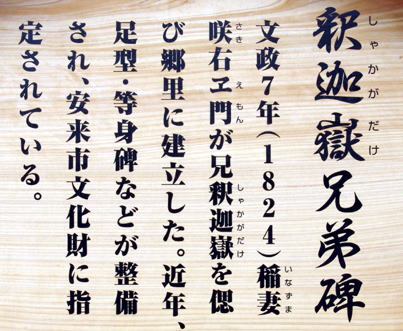 釈迦嶽兄弟碑
しゃかがだけ
文政7年(1824)稲妻
いなずま
咲右ヱ門が兄釈迦嶽を偲
さき え もん しゃかがだけ
び郷里に建立した。近年、
足型・等身碑などが整備
され、安来市文化財に指
定されている。